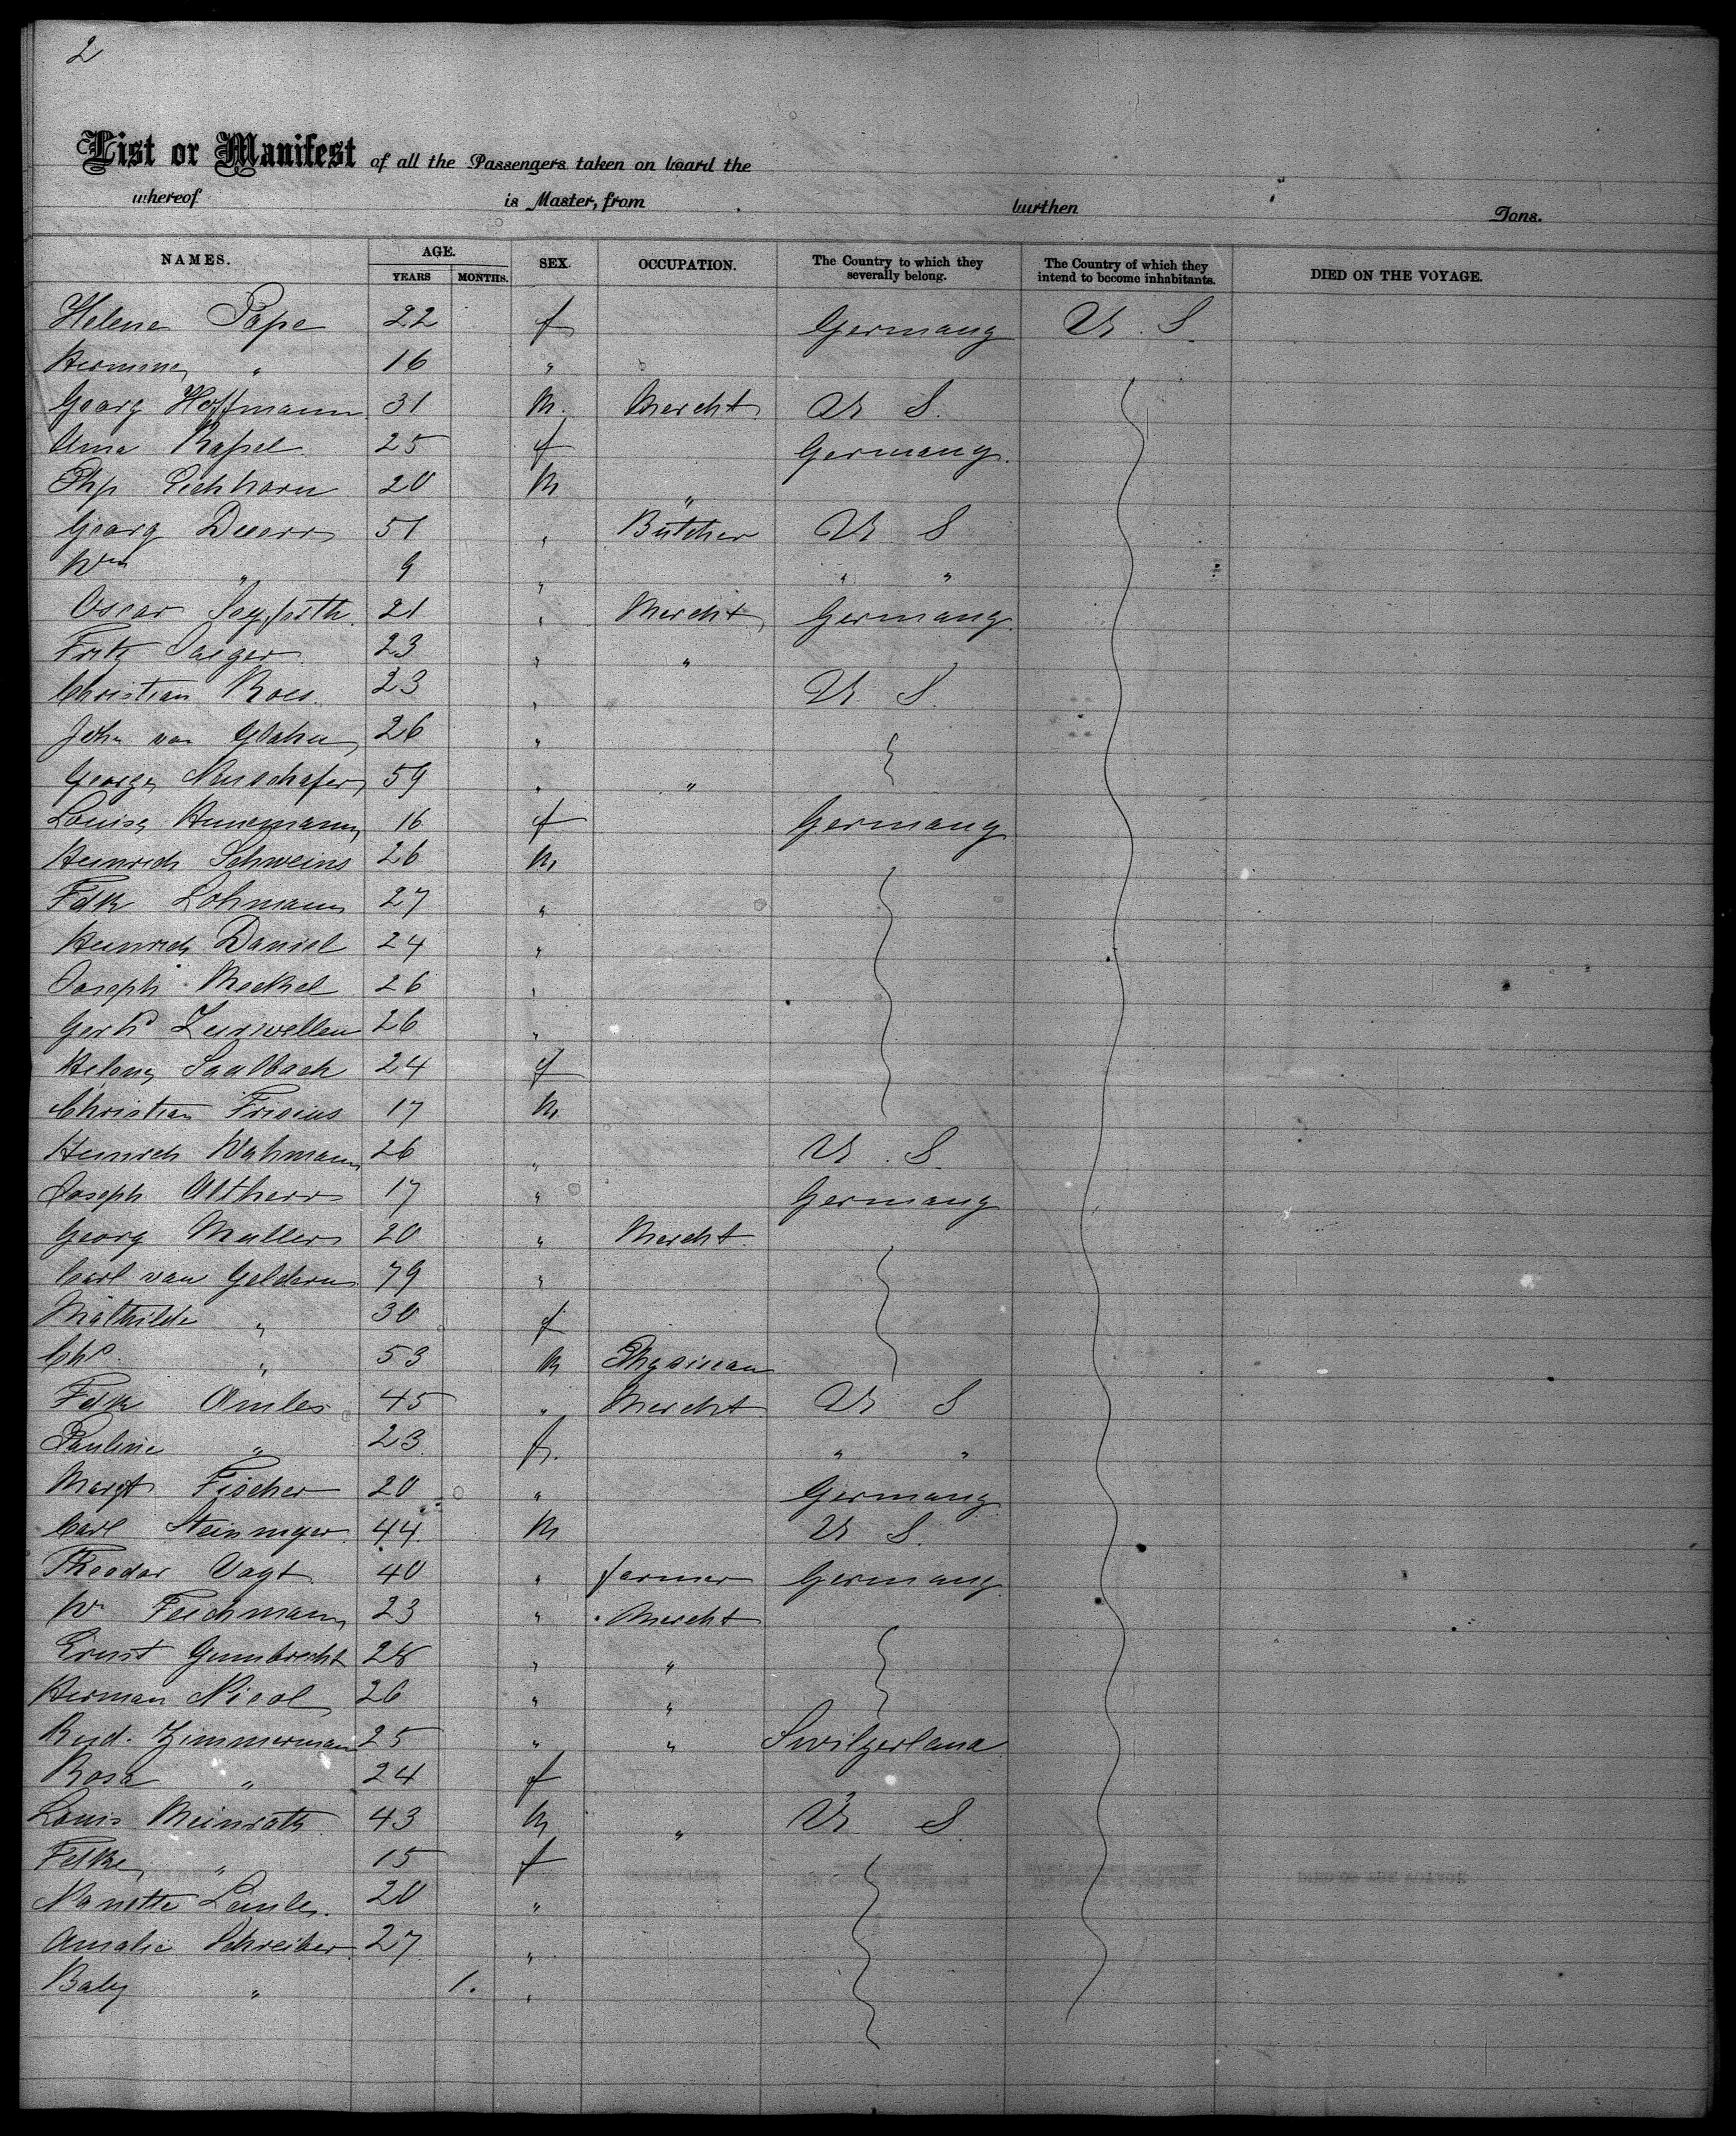 2
List or Manifest of all the Passengers taken on board the
whereof is Master, from burthen Tons.
NAMES. AGE. YEARS MONTHS. SEX. OCCUPATION. The Country to which they severally belong. The Country of which they intend to become inhabitants. DIED ON THE VOYAGE.
Helene Pape 22 f Germany U. S.
Hermine " 16 "
Georg Hoffmann 31 M. Mercht U S.
Anna 25 f Germany.
Php Eichhorn 20 M "
Georg Duerr 51 " Butcher U S
Wm " 9 " " "
Oscar Seyfirth. 21 " Mercht Germany.
Fritz Jaeger 23 " "
Christian Roes. 23 " U. S.
John van Glahn 26 "
George Neuschafer 59 " "
Louise Hunemann 16 f Germany
Heinrich Schweins 26 M
Fdk Lohmann 27 "
Heinrich Daniel 24 "
Joseph Meckel 26 "
Gerhd Zurwellen 26 "
Helene Saalbach 24 f
Christian Frisius 17 M
Heinrich Wahmann 26 " U. S.
Joseph Altherr 17 " Germany
Georg Muller 20 " Mercht.
Carl van Geldern 79 "
Mathilde " 30 f
" 53 M Physician
Fdk 45 " Mercht U S
Pauline " 23 f. " "
Margt Fischer 20 " Germany
Carl 44. M U S.
Theodor Vogt. 40 " farmer Germany
Wm Feichmann 23 " Mercht
Ernst Gumbrecht 28 " "
Herman Nicol 26 " "
Rud. Zimmerman 25 " " Switzerland
Rosa " 24 f
Louis Meinrath 43 M " U S.
" 15 f
Nanette 20 "
Amalie Schreiber 27 "
Baby " 1. "